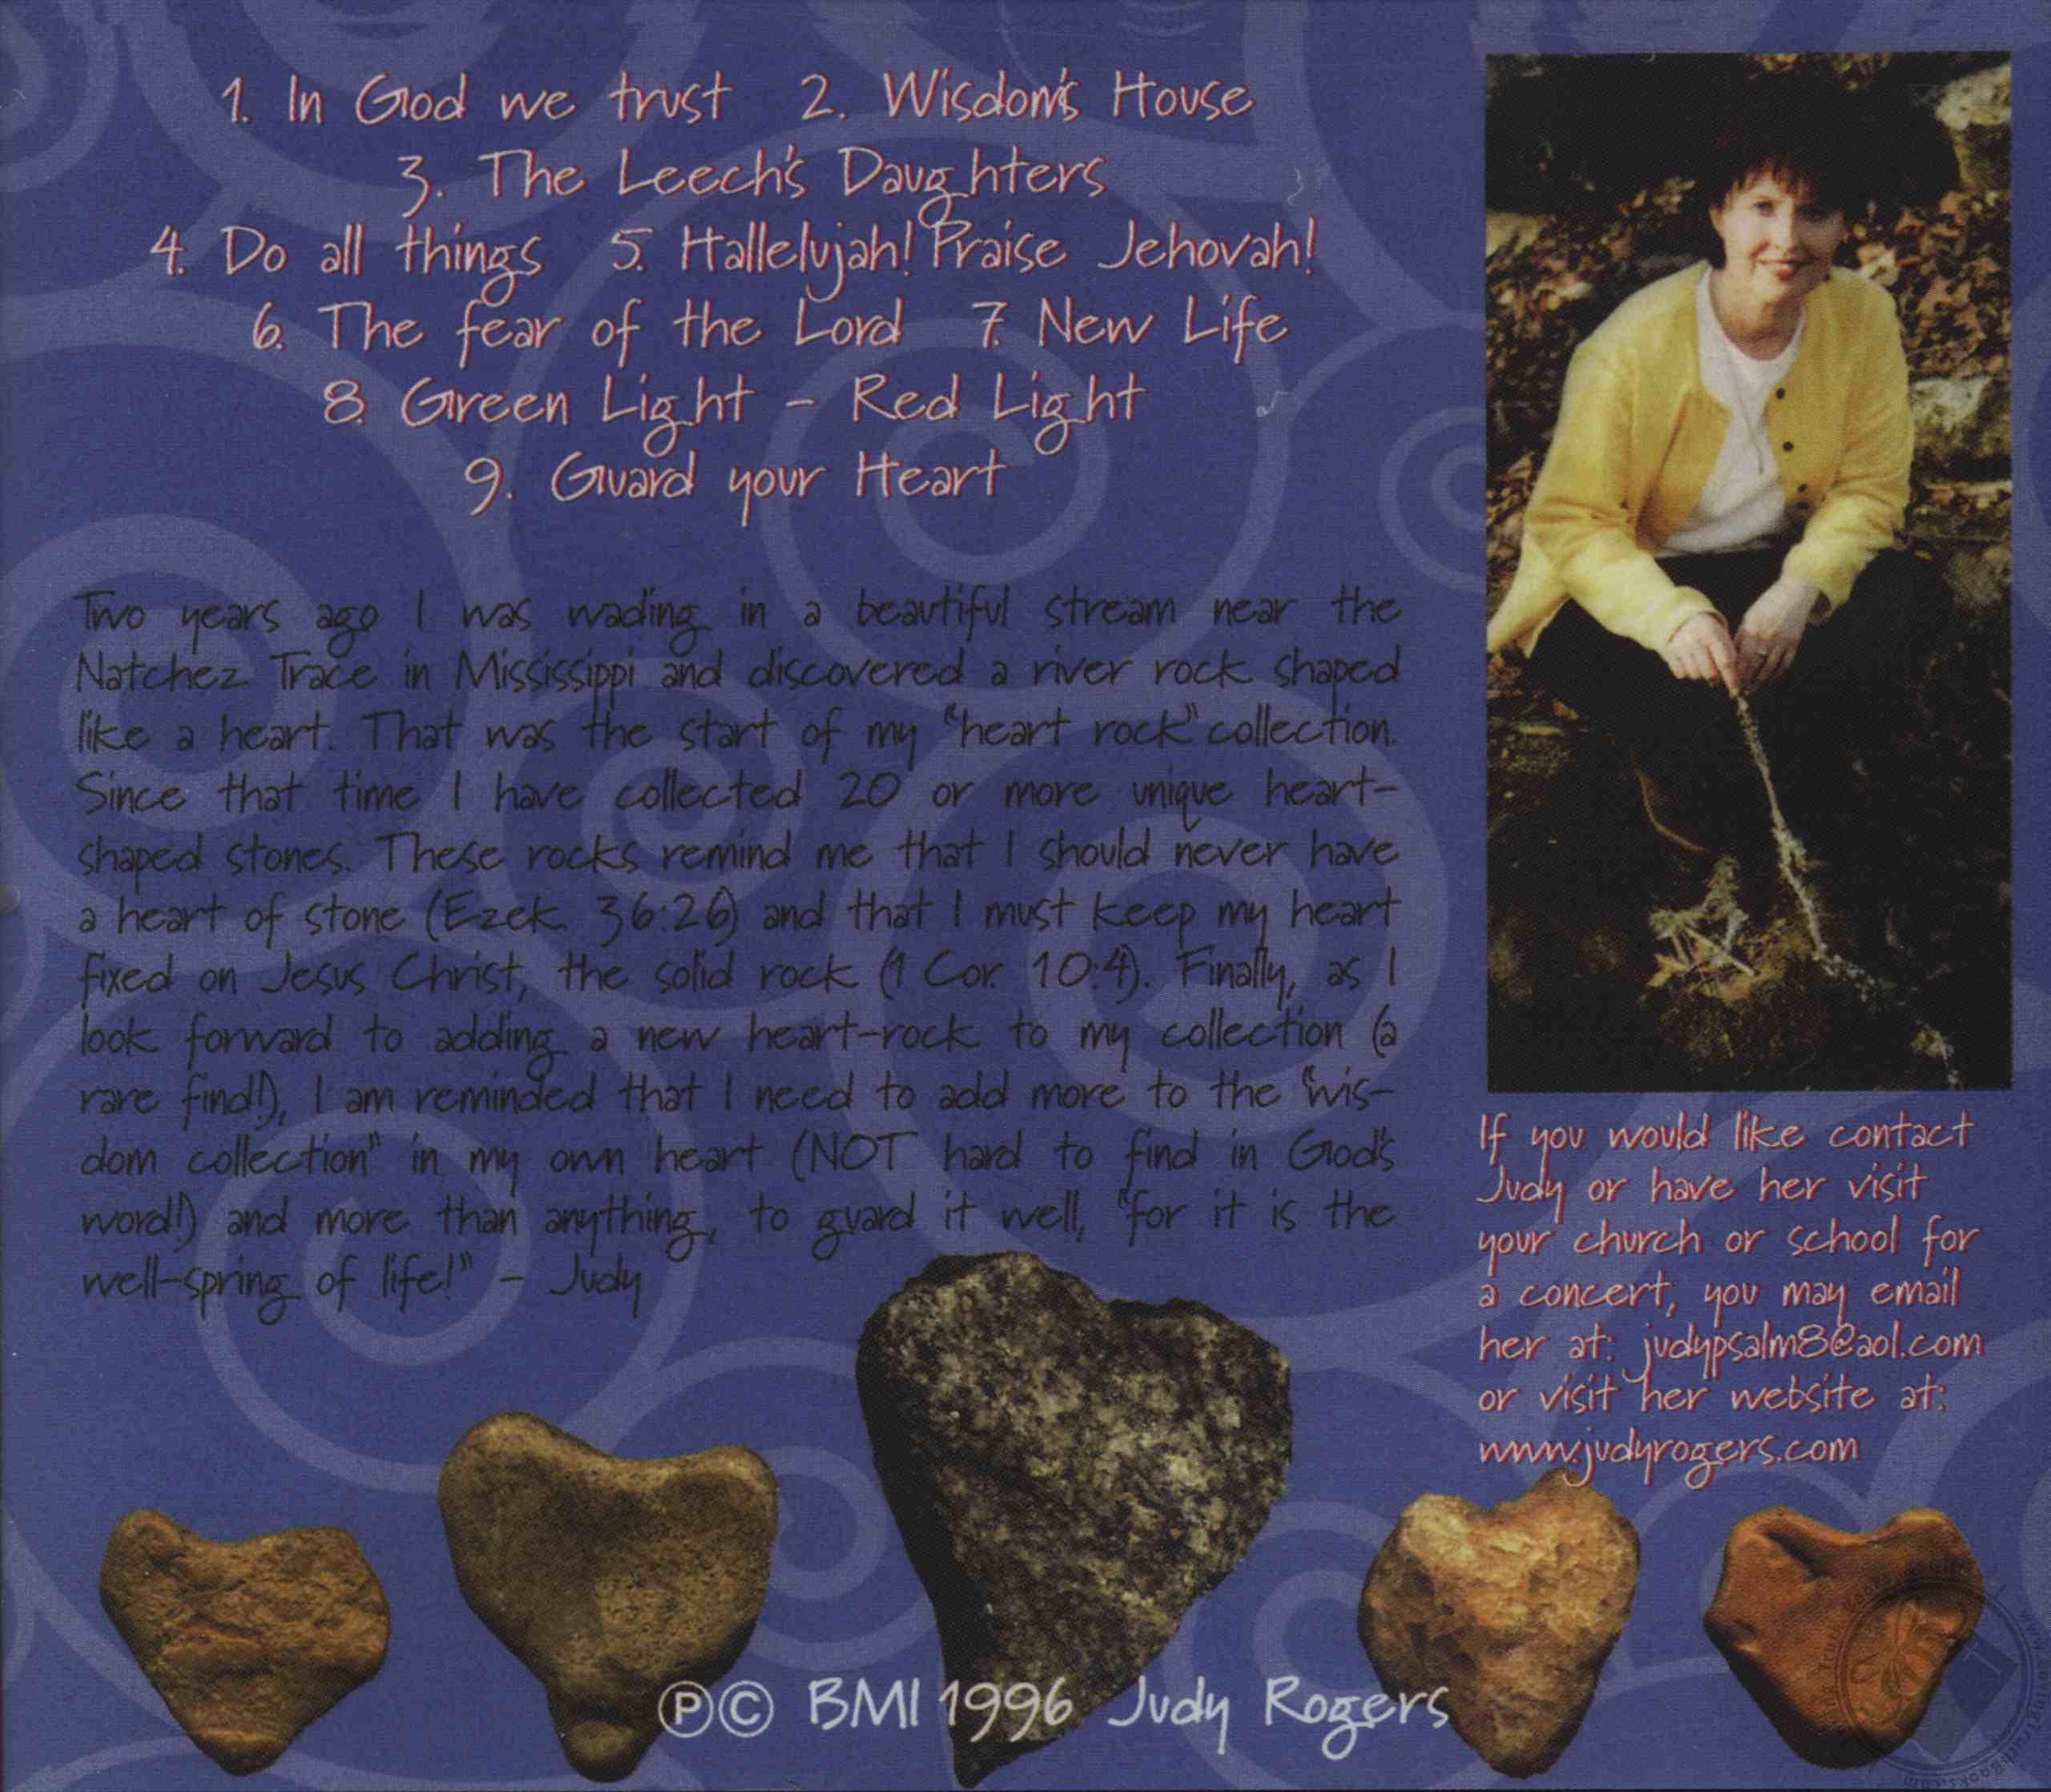 1. In God we trust 2. Wisdom's House
3. The Leech's Daughters
4. Do all things 5. Hallelujah! Praise Jehovah!
6. The fear of the Lord 7. New Life
8. Green Light - Red Light
9. Guard your Heart
Two years ago I was wading in a beautiful stream near the
Natchez Trace in Mississippi and discovered a river rock shaped
like a heart. That was the start of my "heart rock" collection.
Since that time I have collected 20 or more unique heart-
shaped stones. These rocks remind me that I should never have
a heart of stone (Ezek. 36:26) and that I must keep my heart
fixed on Jesus Christ, the solid rock (1 Cor. 10:4). Finally, as I
look forward to adding a new heart-rock to my collection (a
rare find!), I am reminded that I need to add more to the "wis-
dom collection" in my own heart (NOT hard to find in God's
word!) and more than anything, to guard it well, "for it is the
well-spring of life!" - Judy
If you would like contact
Judy or have her visit
your church or school for
a concert, you may email
her at: judypsalm8@aol.com
or visit her website at:
www.judyrogers.com
℗© BMI 1996 Judy Rogers